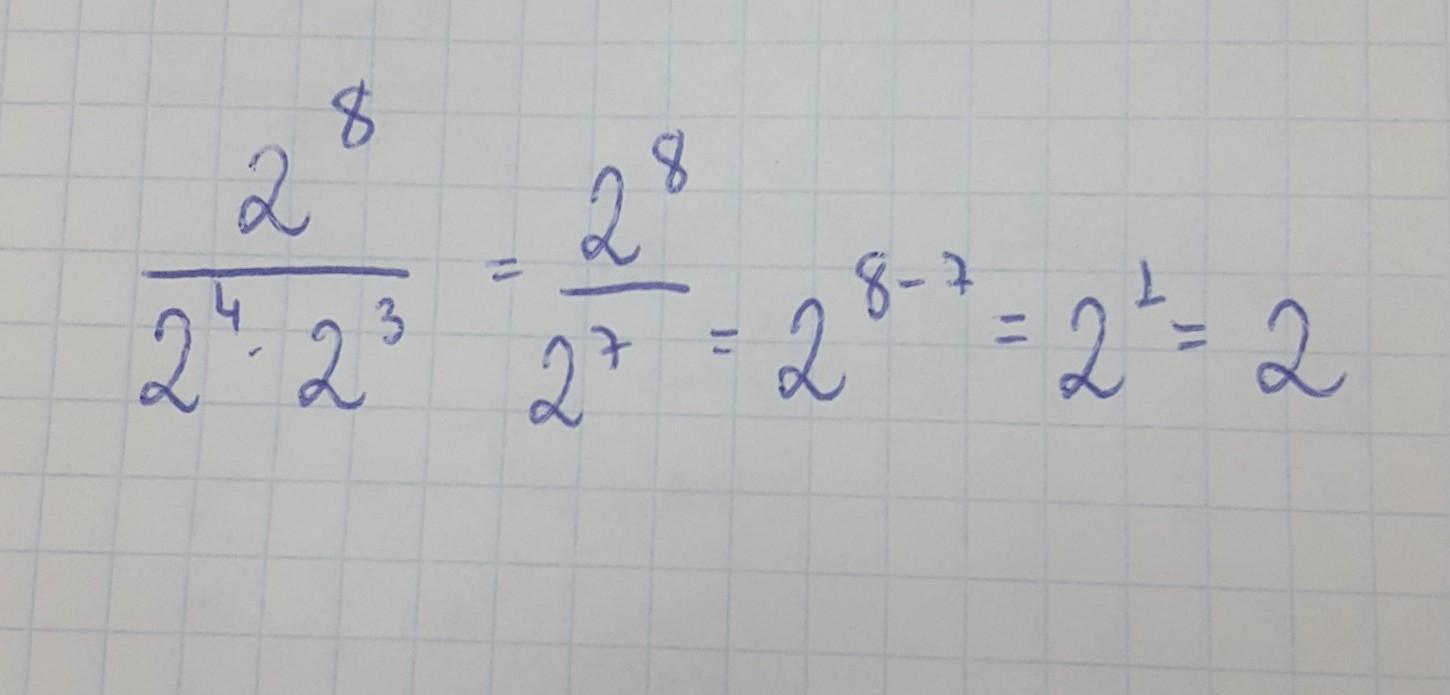 2⁸/(2⁴ · 2³) = 2⁸/2⁷ = 2⁸⁻⁷ = 2¹ = 2